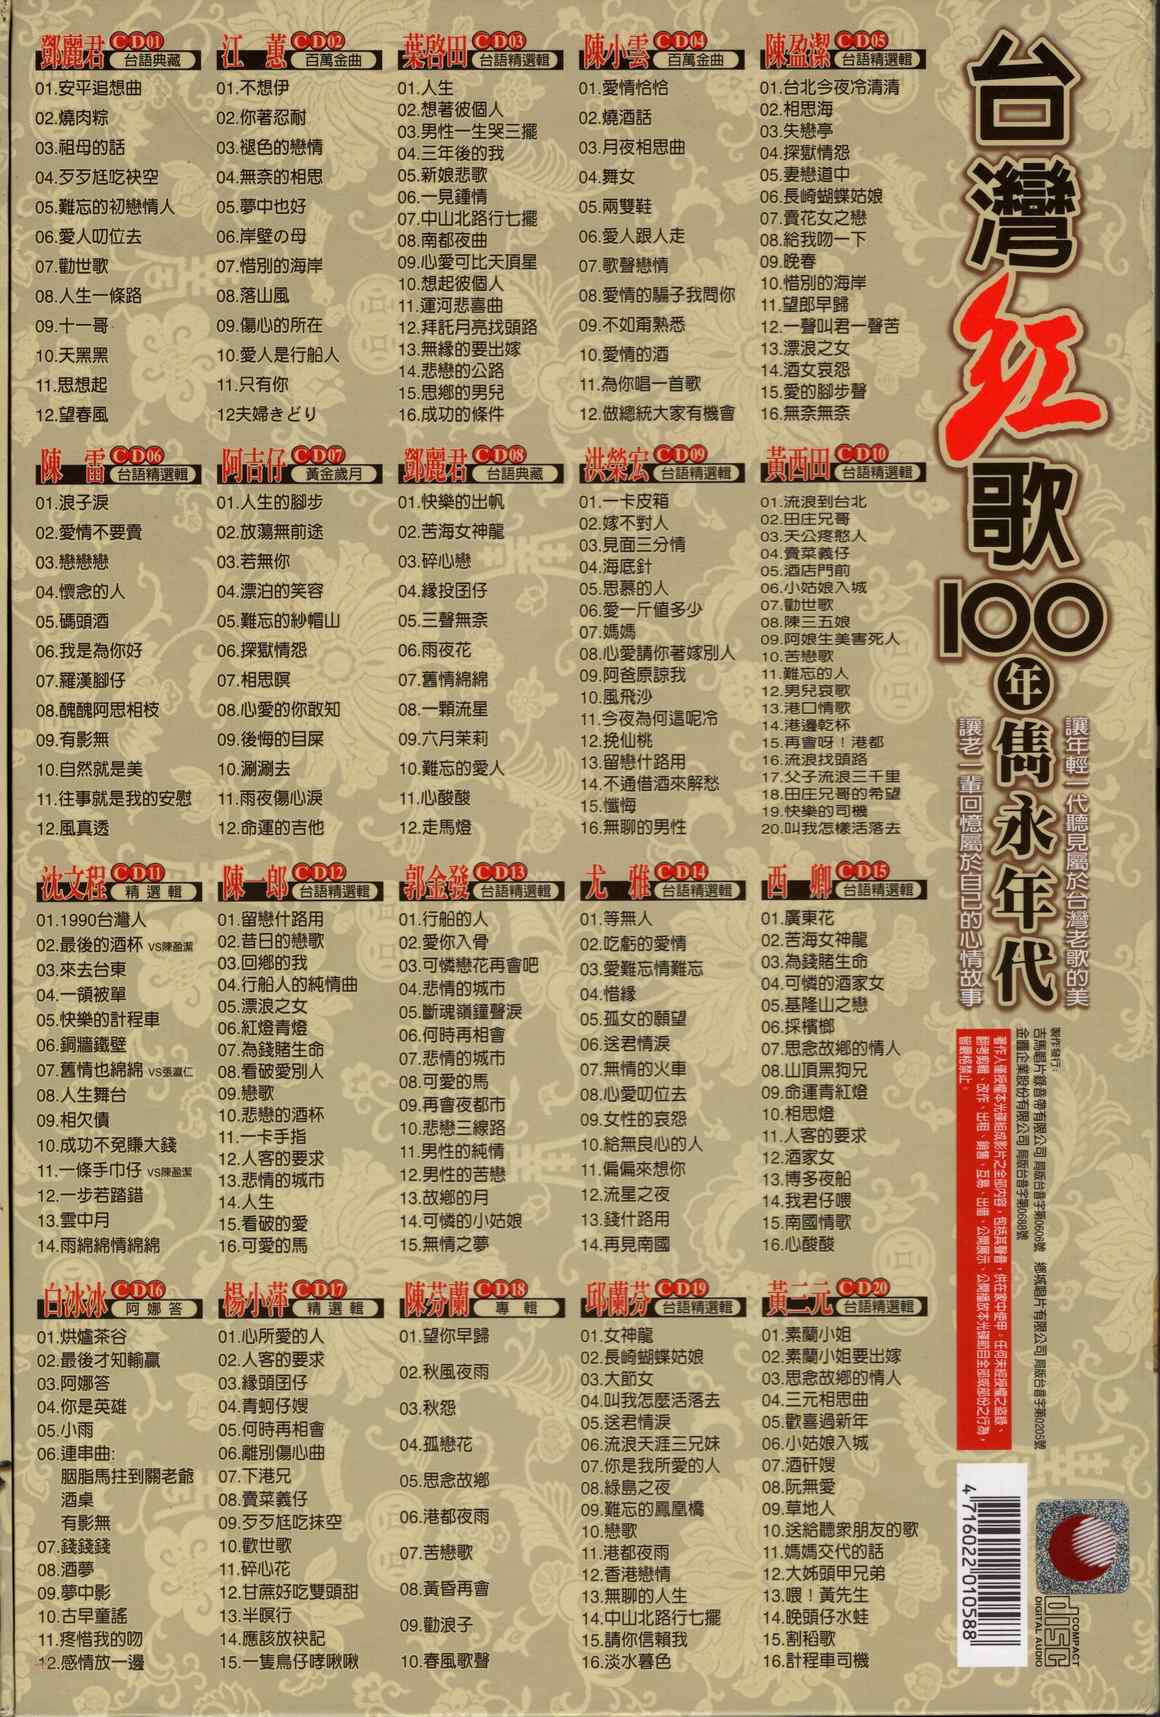 鄧麗君 CD01 台語典藏
01.安平追想曲
02.燒肉粽
03.祖母的話
04.歹歹尪吃袂空
05.難忘的初戀情人
06.愛人叨位去
07.勸世歌
08.人生一條路
09.十一哥
10.天黑黑
11.思想起
12.望春風
江 蕙 CD02 百萬金曲
01.不想伊
02.你著忍耐
03.褪色的戀情
04.無奈的相思
05.夢中也好
06.岸壁の母
07.惜別的海岸
08.落山風
09.傷心的所在
10.愛人是行船人
11.只有你
12夫婦きどり
葉啓田 CD03 台語精選輯
01.人生
02.想著彼個人
03.男性一生哭三擺
04.三年後的我
05.新娘悲歌
06.一見鍾情
07.中山北路行七擺
08.南都夜曲
09.心愛可比天頂星
10.想起彼個人
11.運河悲喜曲
12.拜託月亮找頭路
13.無緣的要出嫁
14.悲戀的公路
15.思鄉的男兒
16.成功的條件
陳小雲 CD04 百萬金曲
01.愛情恰恰
02.燒酒話
03.月夜相思曲
04.舞女
05.兩雙鞋
06.愛人跟人走
07.歌聲戀情
08.愛情的騙子我問你
09.不如甭熟悉
10.愛情的酒
11.為你唱一首歌
12.做總統大家有機會
陳盈潔 CD05 台語精選輯
01.台北今夜冷清清
02.相思海
03.失戀亭
04.探獄情怨
05.妻戀道中
06.長崎蝴蝶姑娘
07.賣花女之戀
08.給我吻一下
09.晚春
10.惜別的海岸
11.望郎早歸
12.一聲叫君一聲苦
13.漂浪之女
14.酒女哀怨
15.愛的腳步聲
16.無奈無奈
陳 雷 CD06 台語精選輯
01.浪子淚
02.愛情不要賣
03.戀戀戀
04.懷念的人
05.碼頭酒
06.我是為你好
07.羅漢腳仔
08.醜醜阿思相枝
09.有影無
10.自然就是美
11.往事就是我的安慰
12.風真透
阿吉仔 CD07 黃金歲月
01.人生的腳步
02.放蕩無前途
03.若無你
04.漂泊的笑容
05.難忘的紗帽山
06.探獄情怨
07.相思暝
08.心愛的你敢知
09.後悔的目屎
10.涮涮去
11.雨夜傷心淚
12.命運的吉他
鄧麗君 CD08 台語典藏
01.快樂的出帆
02.苦海女神龍
03.碎心戀
04.緣投囝仔
05.三聲無奈
06.雨夜花
07.舊情綿綿
08.一顆流星
09.六月茉莉
10.難忘的愛人
11.心酸酸
12.走馬燈
洪榮宏 CD09 台語精選輯
01.一卡皮箱
02.嫁不對人
03.見面三分情
04.海底針
05.思慕的人
06.愛一斤值多少
07.媽媽
08.心愛請你著嫁別人
09.阿爸原諒我
10.風飛沙
11.今夜為何這呢冷
12.挽仙桃
13.留戀什路用
14.不通借酒來解愁
15.懺悔
16.無聊的男性
黃西田 CD10 台語精選輯
01.流浪到台北
02.田庄兄哥
03.天公疼憨人
04.賣菜義仔
05.酒店門前
06.小姑娘入城
07.勸世歌
08.陳三五娘
09.阿娘生美害死人
10.苦戀歌
11.難忘的人
12.男兒哀歌
13.港口情歌
14.港邊乾杯
15.再會呀！港都
16.流浪找頭路
17.父子流浪三千里
18.田庄兄哥的希望
19.快樂的司機
20.叫我怎樣活落去
沈文程 CD11 精選輯
01.1990台灣人
02.最後的酒杯 VS陳盈潔
03.來去台東
04.一領被單
05.快樂的計程車
06.銅牆鐵壁
07.舊情也綿綿 VS張瀛仁
08.人生舞台
09.相欠債
10.成功不免賺大錢
11.一條手巾仔 VS陳盈潔
12.一步若踏錯
13.雲中月
14.雨綿綿情綿綿
陳一郎 CD12 台語精選輯
01.留戀什路用
02.昔日的戀歌
03.回鄉的我
04.行船人的純情曲
05.漂浪之女
06.紅燈青燈
07.為錢賭生命
08.看破愛別人
09.戀歌
10.悲戀的酒杯
11.一卡手指
12.人客的要求
13.悲情的城市
14.人生
15.看破的愛
16.可愛的馬
郭金發 CD13 台語精選輯
01.行船的人
02.愛你入骨
03.可憐戀花再會吧
04.悲情的城市
05.斷魂嶺鐘聲淚
06.何時再相會
07.悲情的城市
08.可愛的馬
09.再會夜都市
10.悲戀三線路
11.男性的純情
12.男性的苦戀
13.故鄉的月
14.可憐的小姑娘
15.無情之夢
尤 雅 CD14 台語精選輯
01.等無人
02.吃虧的愛情
03.愛難忘情難忘
04.惜緣
05.孤女的願望
06.送君情淚
07.無情的火車
08.心愛叨位去
09.女性的哀怨
10.給無良心的人
11.偏偏來想你
12.流星之夜
13.錢什路用
14.再見南國
西 卿 CD15 台語精選輯
01.廣東花
02.苦海女神龍
03.為錢賭生命
04.可憐的酒家女
05.基隆山之戀
06.採檳榔
07.思念故鄉的情人
08.山頂黑狗兄
09.命運青紅燈
10.相思燈
11.人客的要求
12.酒家女
13.博多夜船
14.我君仔喂
15.南國情歌
16.心酸酸
白冰冰 CD16 阿娜答
01.烘爐茶谷
02.最後才知輸贏
03.阿娜答
04.你是英雄
05.小雨
06.連串曲:
胭脂馬拄到關老爺
酒桌
有影無
07.錢錢錢
08.酒夢
09.夢中影
10.古早童謠
11.疼惜我的吻
12.感情放一邊
楊小萍 CD17 精選輯
01.心所愛的人
02.人客的要求
03.緣頭囝仔
04.青蚵仔嫂
05.何時再相會
06.離別傷心曲
07.下港兄
08.賣菜義仔
09.歹歹尪吃抹空
10.歡世歌
11.碎心花
12.甘蔗好吃雙頭甜
13.半暝行
14.應該放袂記
15.一隻鳥仔哮啾啾
陳芬蘭 CD18 專輯
01.望你早歸
02.秋風夜雨
03.秋怨
04.孤戀花
05.思念故鄉
06.港都夜雨
07.苦戀歌
08.黃昏再會
09.勸浪子
10.春風歌聲
邱蘭芬 CD19 台語精選輯
01.女神龍
02.長崎蝴蝶姑娘
03.大節女
04.叫我怎麼活落去
05.送君情淚
06.流浪天涯三兄妹
07.你是我所愛的人
08.綠島之夜
09.難忘的鳳凰橋
10.戀歌
11.港都夜雨
12.香港戀情
13.無聊的人生
14.中山北路行七擺
15.請你信賴我
16.淡水暮色
黃三元 CD20 台語精選輯
01.素蘭小姐
02.素蘭小姐要出嫁
03.思念故鄉的情人
04.三元相思曲
05.歡喜過新年
06.小姑娘入城
07.酒矸嫂
08.阮無愛
09.草地人
10.送給聽眾朋友的歌
11.媽媽交代的話
12.大姊頭甲兄弟
13.喂！黃先生
14.晚頭仔水蛙
15.割稻歌
16.計程車司機
台灣紅歌100年雋永年代
讓年輕一代聽見屬於台灣老歌的美
讓老一輩回憶屬於自已的心情故事
製作發行:
吉馬唱片錄音帶有限公司 局版台音字第0606號 鄉城唱片有限公司 局版台音字第0205號
金圓企業股份有限公司 局版台音字第0688號
著作人僅授權本光碟組成影片之全部內容，包括其聲音，供在家中使用，任何未經授權之盜錄、
翻考剪輯、改作、出租、銷售、互易、出借、公開展示、公開播放本光碟節目全部或部份之行為，
皆嚴格禁止。
4 716022 010588
COMPACT
disc
DIGITAL AUDIO